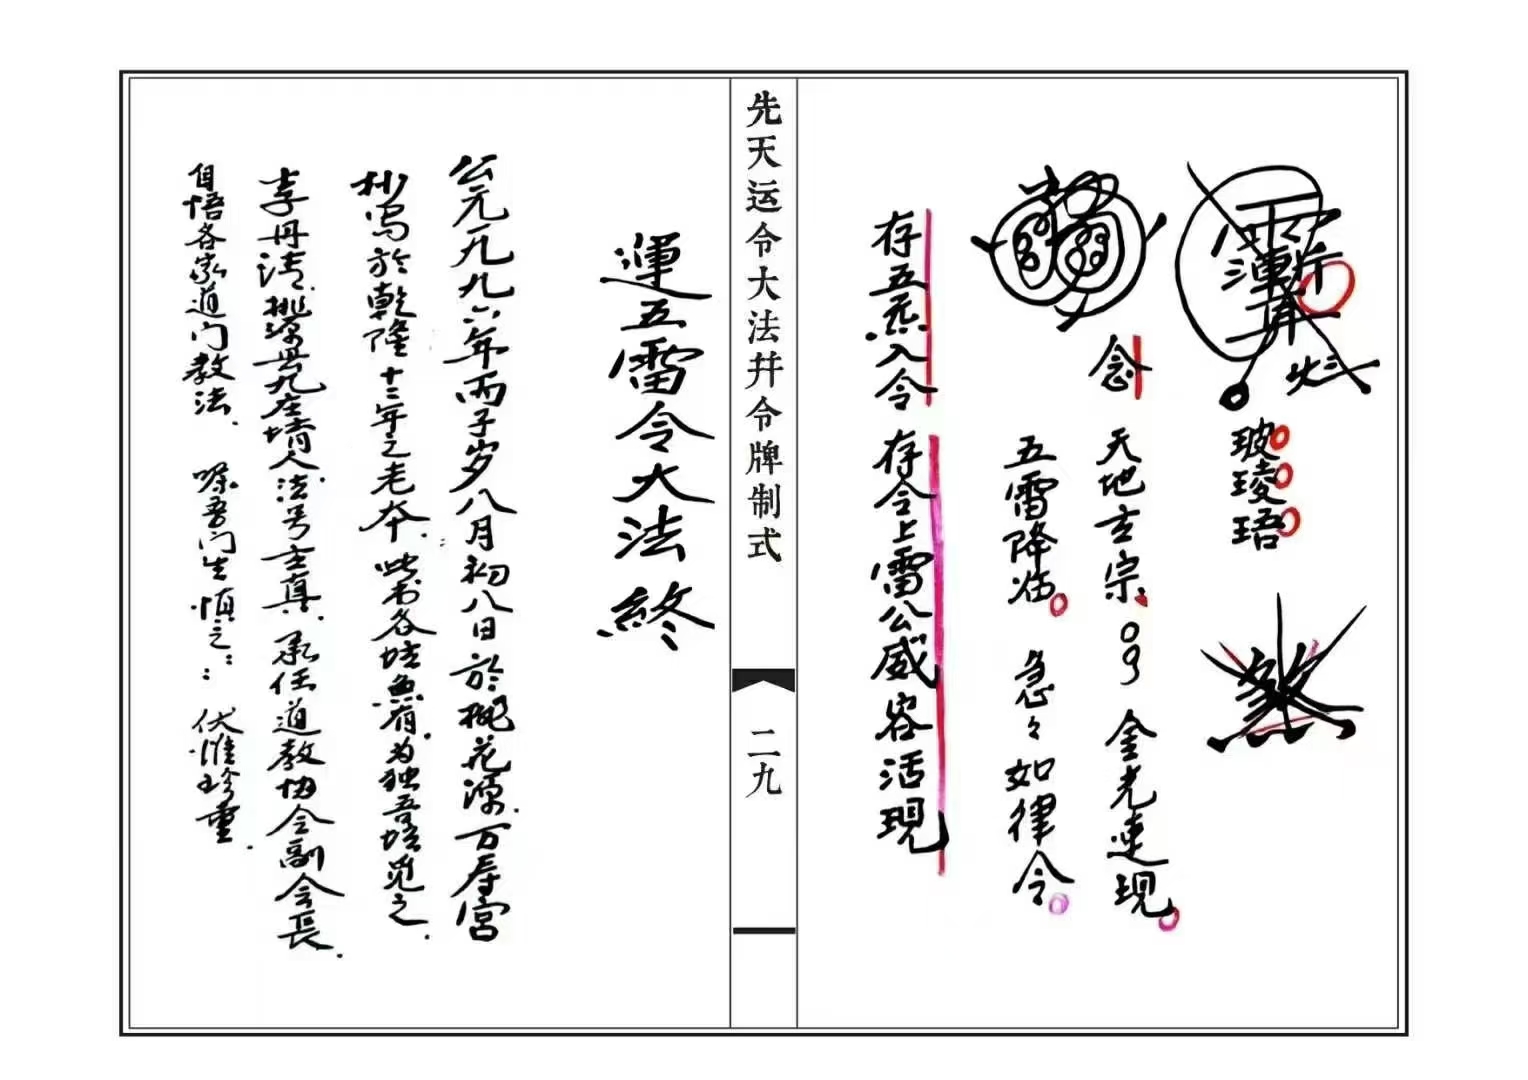 玻璄珸
念 天地玄宗 金光速現
五雷降临 急々如律令
存五炁入令 存令上雷公威容活現
先天运令大法并令牌制式
二九
運五雷令大法終
公元一九九六年丙子岁八月初八日於桃花源万寿宮
抄写於乾隆十三年之老本 此书各坛魚有 为独吾坛觅之
李丹清 桃源 人 法号玄真 承任道教协会副会長
自悟各家道门教法 嘱吾门生慎之 伏惟珍重